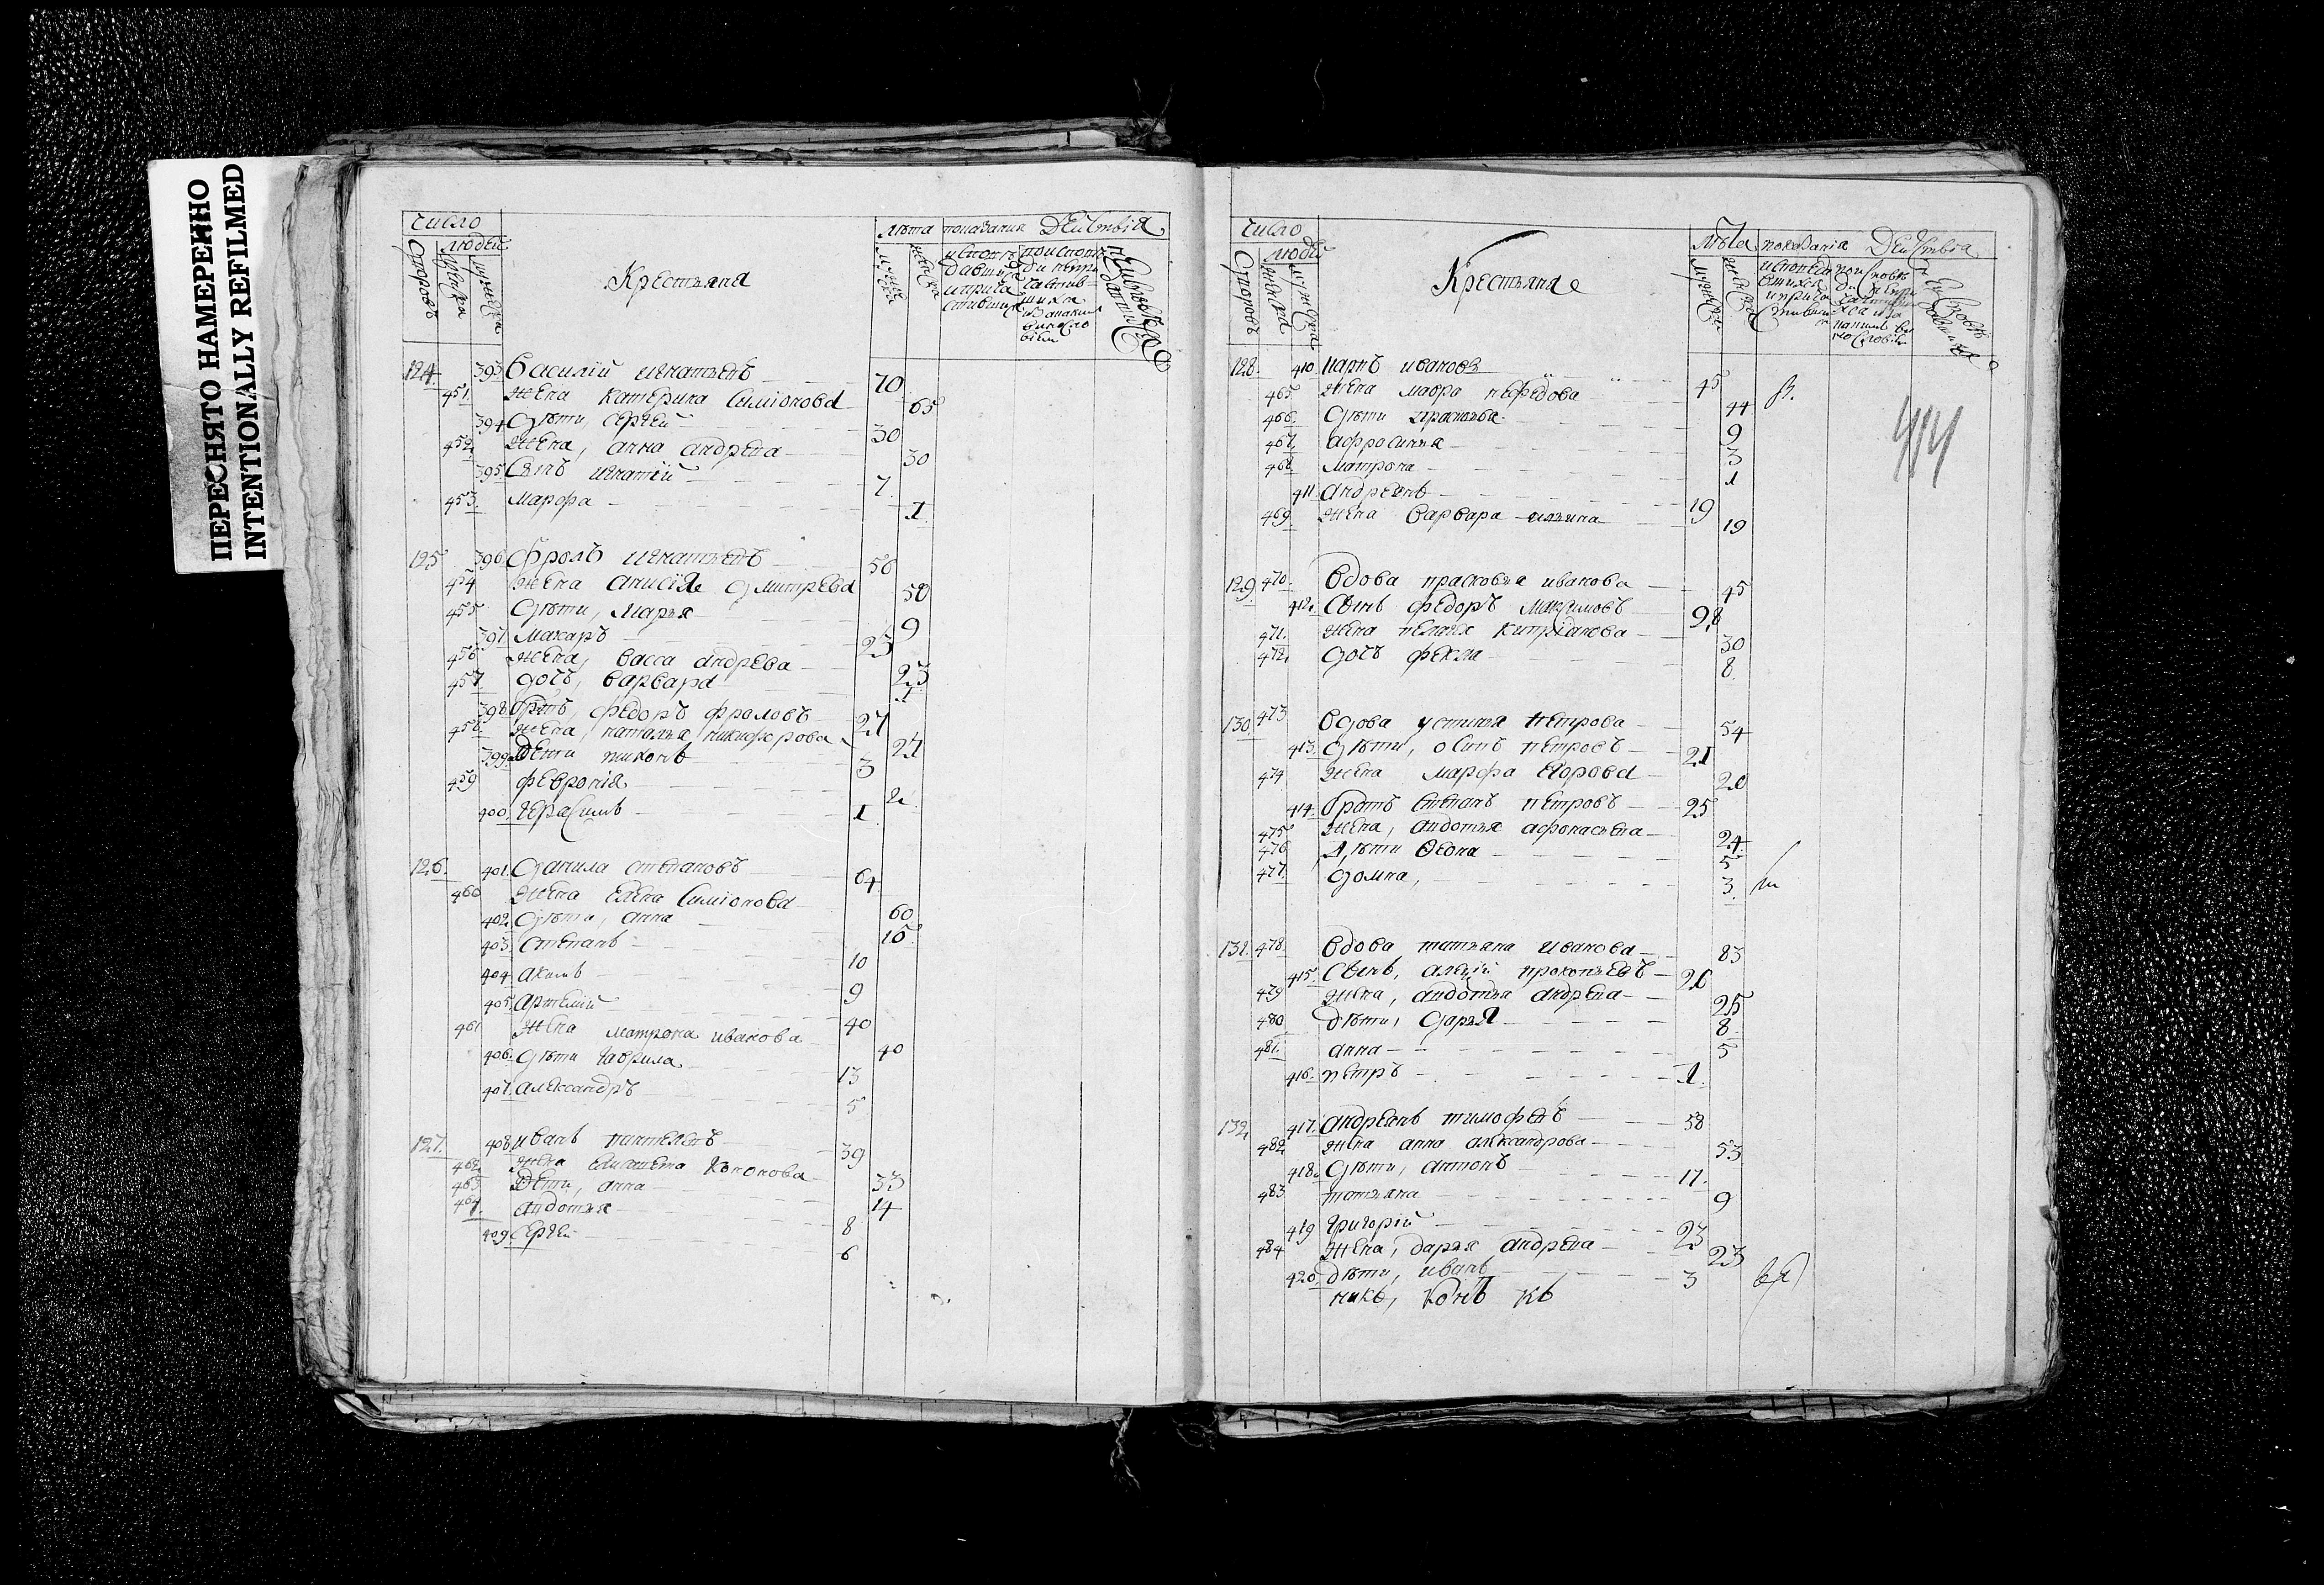 ПЕРЕСНЯТО НАМЕРЕННО
INTENTIONALLY REFILMED
число
людей
Крестьяне
лѣта показания Действія
124. 393 Василій игнатьевъ 70
451 жена катерина симіонова 65
394 дѣти, сергей 30
452 жена, анна андрева 30
395 Сынъ игнатій 7
453 марфа 1
125 396 фролъ игнатьевъ 56
454 жена анисія дмитрева 50
455 дѣти, марья 9
397 макаръ 23
456 жена, васса андрева 23
457 дочь, варвара 1
398 братъ, федоръ фроловъ 27
458 жена, наталья никифорова 27
399 дети никонъ 3
459 феврония 2
400 герасимъ 1
126 401 данила степановъ 64
460 жена елена симіонова 60
402 дѣти, анна 15
403 степанъ 10
404 акимъ 9
405 артемій 40
461 жена матрона иванова 40
406 дѣти гаврила 13
407 александръ 5
127. 408 иванъ пантелевъ 39
462 жена елисавета кононова 33
463 дети, анна 14
464 авдотья 8
409 сергей 6
число
людей
Крестьяне
лѣта показанія Действія
128. 410 карпъ ивановъ 45
465 жена мавра нефедова 44
466 дѣти прасковья 9
467 афросинья 3
468 матрона 1
411 андреянъ 19
469 жена варвара ильина 19
129 470 вдова прасковья иванова 45
412 Сынъ федоръ максимовъ 28
471 жена пелагея кипріанова 30
472 дочь фекла 8
130 473 вдова устинья петрова 54
413 дѣти, осипъ петровъ 21
474 жена марфа егорова 20
414 братъ степанъ петровъ 25
475 жена, авдотья афонасьева 24
476 дѣти 5
477 домна, 3
131. 478 вдова татьяна иванова 83
415 Сынъ, алексій прокопьевъ 26
479 жена, авдотья андрева 25
480 дѣти, дарья 8
481 анна 5
416 петръ 1
132 417 андреянъ тимофевъ 58
482 жена анна александрова 53
418 дѣти, антонъ 17
483 татьяна 9
419 григорій 23
484 жена, дарья андрева 23
420 дѣти, иванъ 3